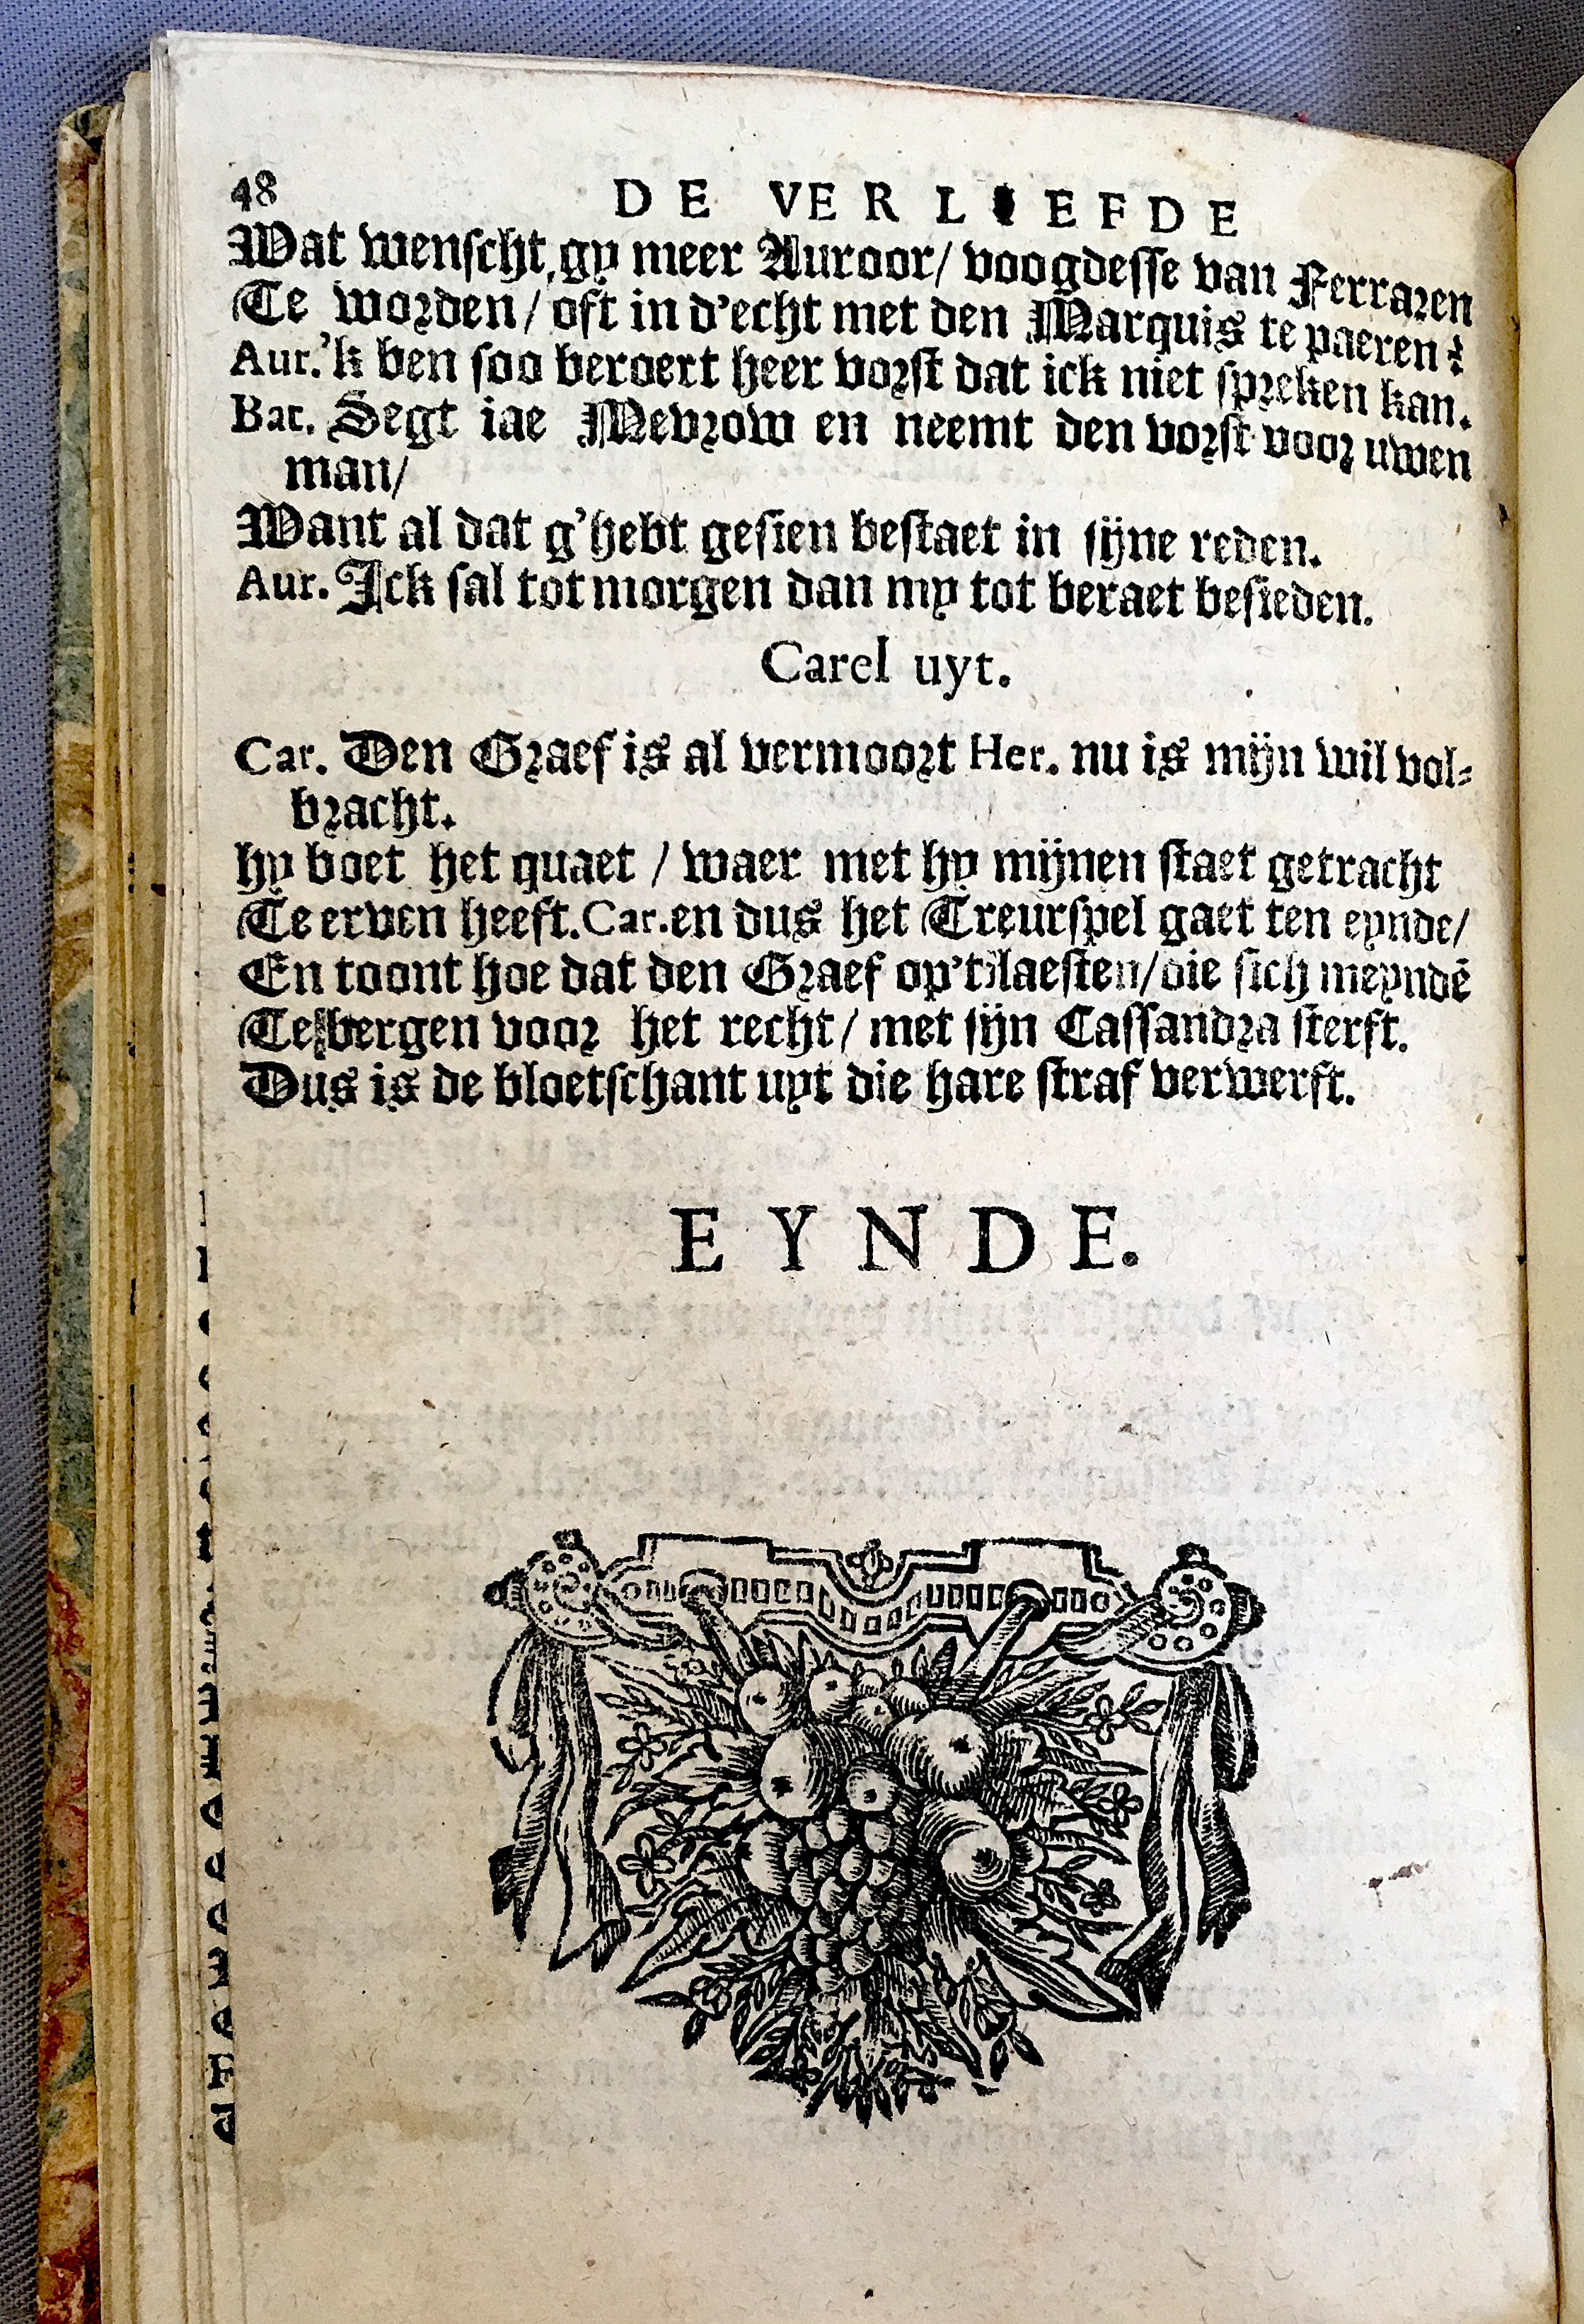 48 DE VERLIEFDE
Wat wenscht gy meer Auroor/ voogdesse van Ferraren
Te worden/ oft in d'echt met den Marquis te paeren?
Aur. 'k ben soo beroert heer vorst dat ick niet spreken kan.
Bat. Segt iae Mevrow en neemt den vorst voor uwen
man/
Want al dat g'hebt gesien bestaet in sijne reden.
Aur. Ick sal tot morgen dan my tot beraet besieden.
Carel uyt.
Car. Den Graef is al vermoort Her. nu is mijn wil vol-
bracht.
hy boet het quaet / waer met hy mijnen staet getracht
Te erven heeft. Car. en dus het Treurspel gaet ten eynde/
En toont hoe dat den Graef op't laesten/ die sich meyndē
Te bergen voor het recht/ met sijn Cassandra sterft.
Dus is de bloetschant uyt die hare straf verwerft.
EYNDE.